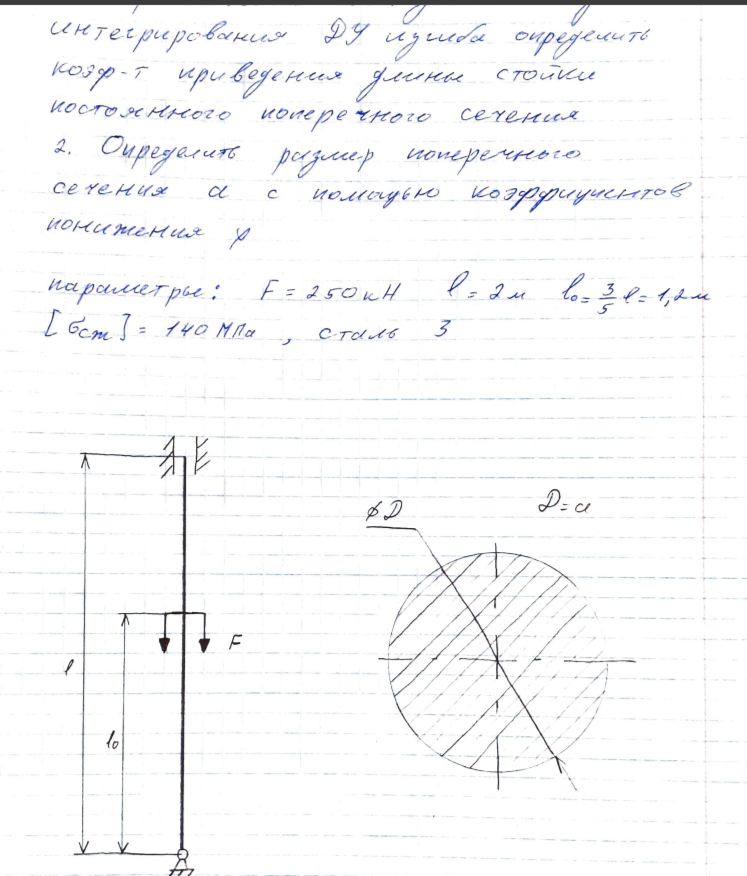 интегрирования ДУ изгиба определить
коэф-т приведения длины стойки
постоянного поперечного сечения
2. Определить размер поперечного
сечения a с помощью коэффициентов
понижения φ
параметры: F = 250 кН l = 2 м l₀ = 3/5 l = 1,2 м
[σсж] = 140 МПа , сталь 3
⌀D
D = a
F
l
l₀